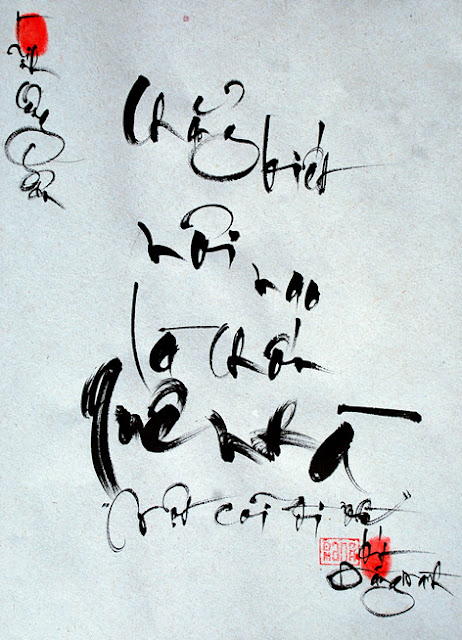 Chẳng
biết
nơi
nao
là chốn
Quê nhà
"Một cõi đi về"
Công
Sơn